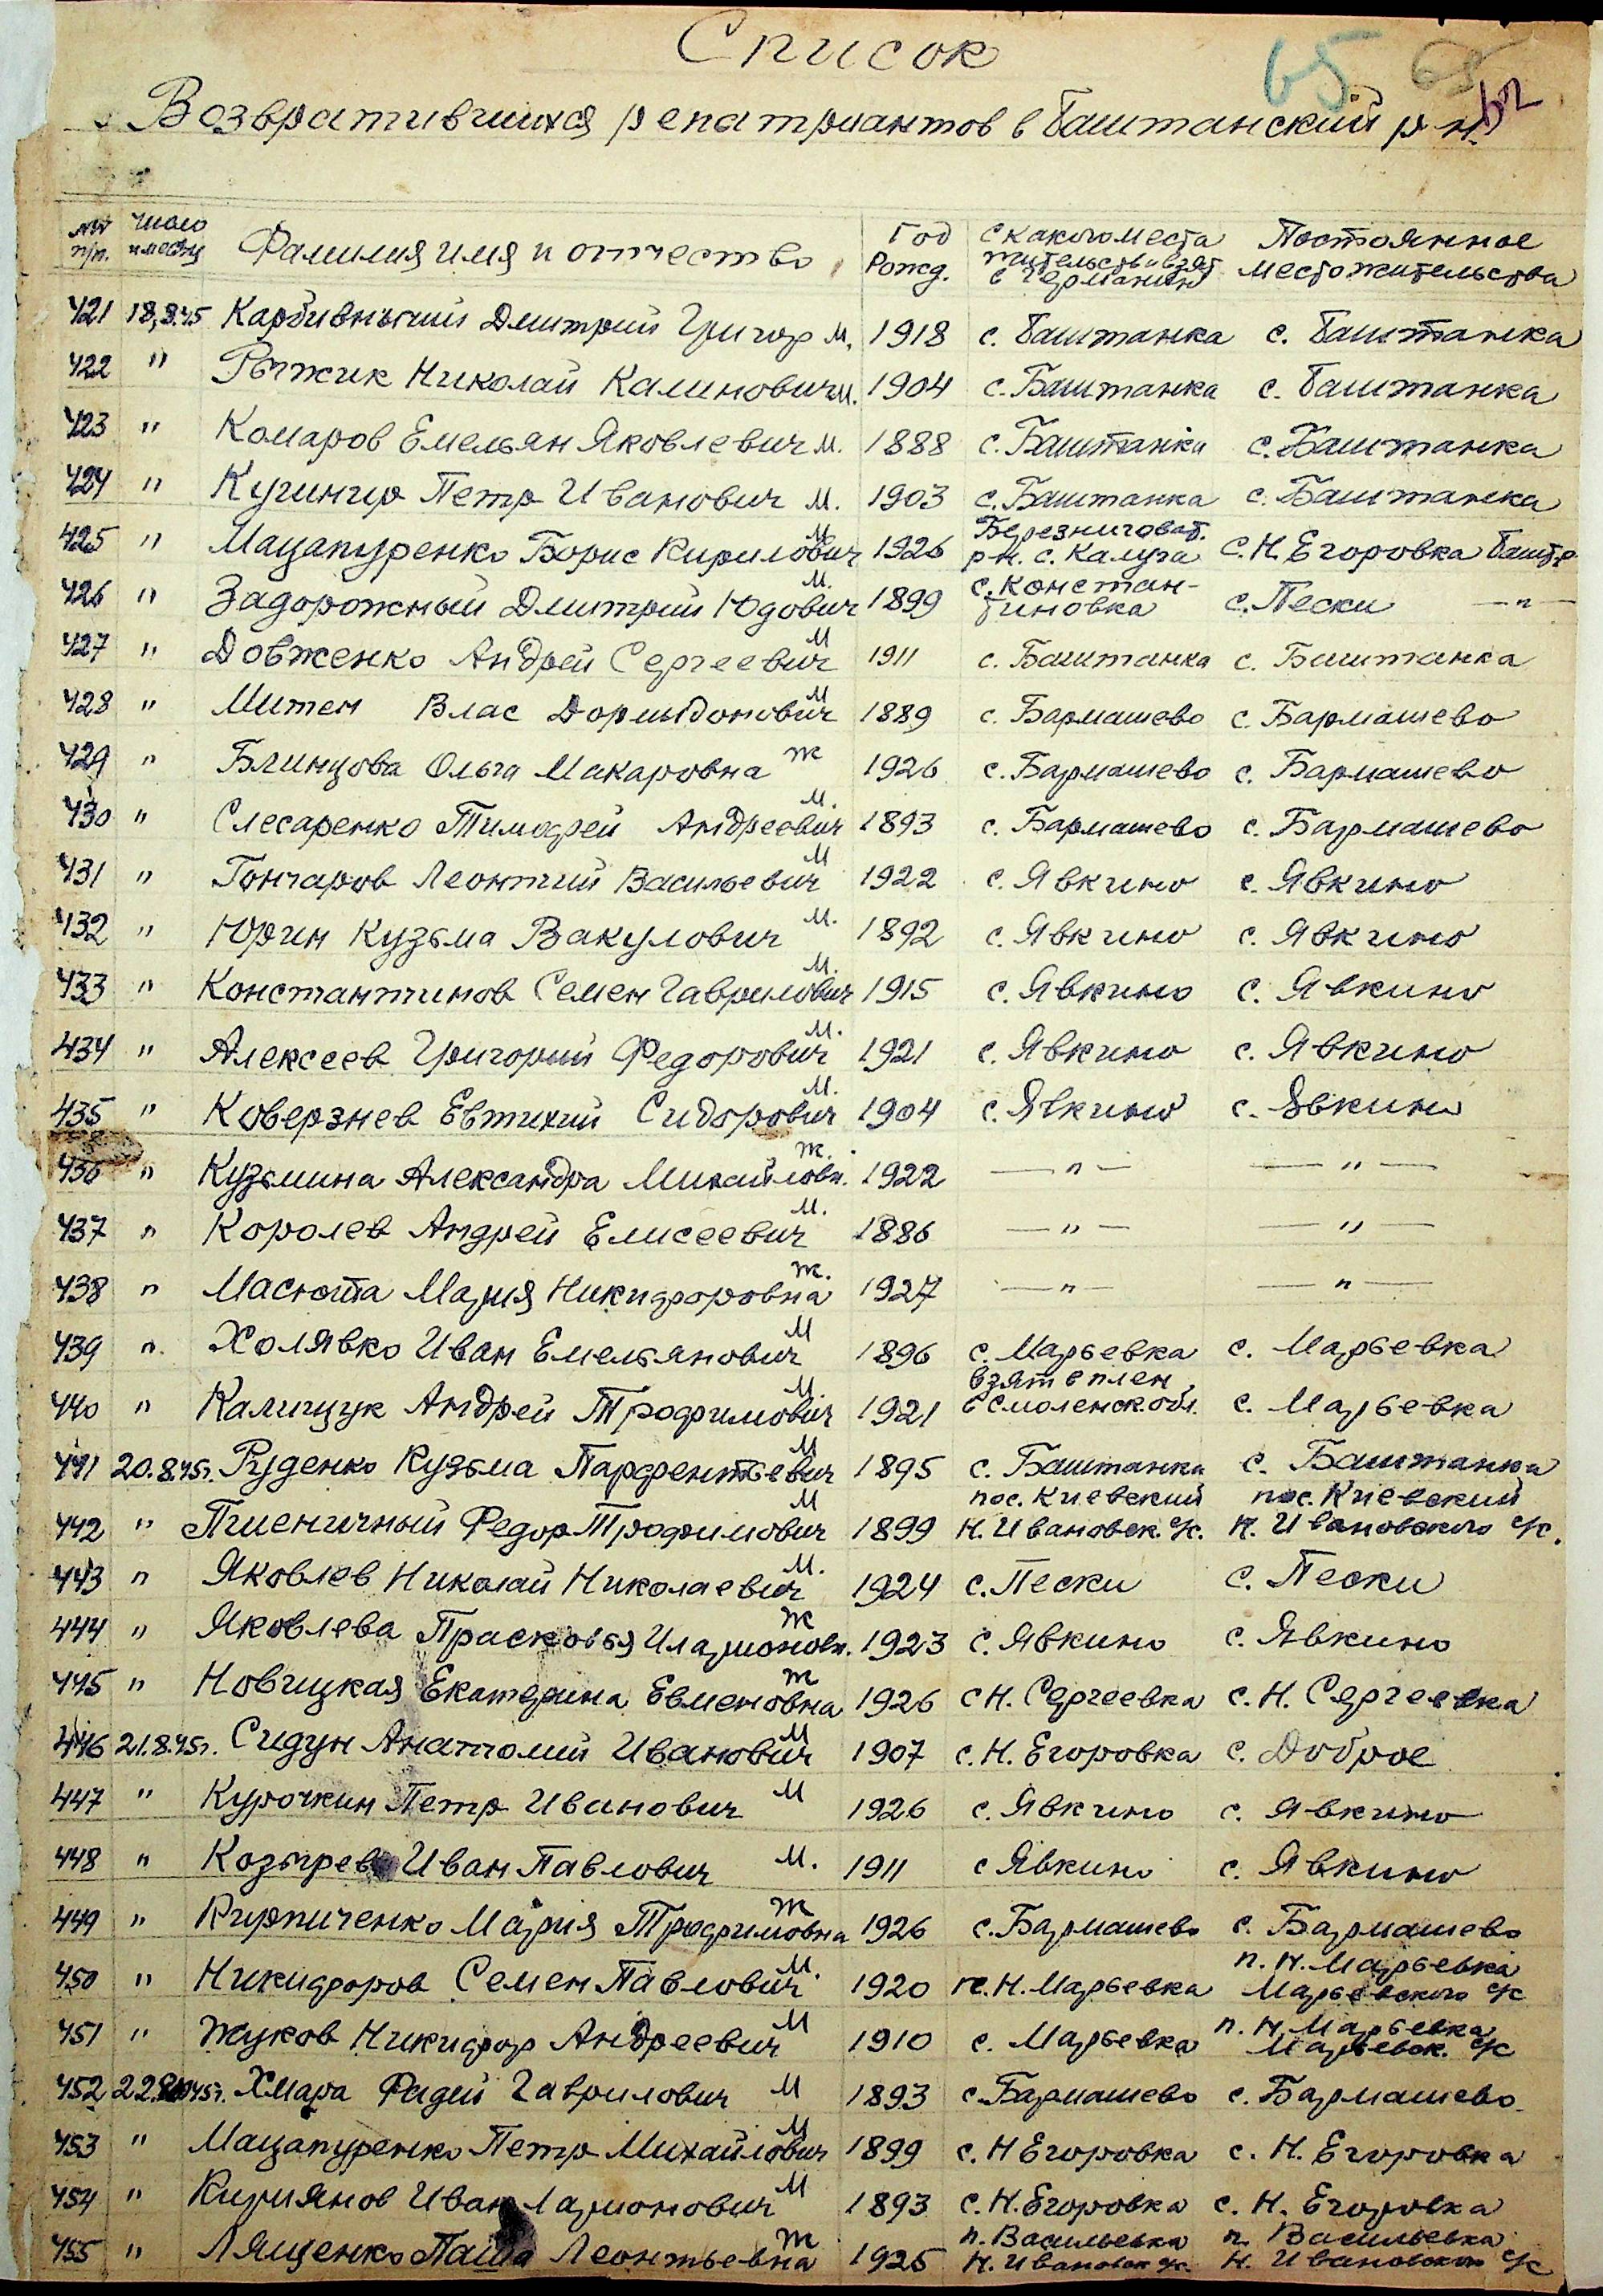 Список
65 62
Возвратившихся репатриантов в Баштанский р-н.
№№ п/п. Число и месяц Фамилия имя и отчество Год Рожд. С какого места жительства взят в Германию Постоянное местожительства
421 18,8.45 Карбивничий Дмитрий Григор м. 1918 с. Баштанка с. Баштанка
422 " Рыжик Николай Калинович м. 1904 с. Баштанка с. Баштанка
423 " Комаров Емельян Яковлевич м. 1888 с. Баштанка с. Баштанка
424 " Кушнир Петр Иванович м. 1903 с. Баштанка с. Баштанка
425 " Мацапуренко Борис Кирилович м 1926 Березниговат. р-н. с. Калуга с. Н. Егоровка Башт.р
426 " Задорожный Дмитрий Юдович м. 1899 с. Константиновка с. Пески — " —
427 " Довженко Андрей Сергеевич м 1911 с. Баштанка с. Баштанка
428 " Митен Влас Дормидонович м 1889 с. Бармашево с. Бармашево
429 " Блинцова Ольга Макаровна ж 1926 с. Бармашево с. Бармашево
430 " Слесаренко Тимофей Андреевич м. 1893 с. Бармашево с. Бармашево
431 " Гончаров Леонтий Васильевич м 1922 с. Явкино с. Явкино
432 " Юрин Кузьма Вакулович м. 1892 с. Явкино с. Явкино
433 " Константинов Семен Гаврилович м. 1915 с. Явкино с. Явкино
434 " Алексеев Григорий Федорович м. 1921 с. Явкино с. Явкино
435 " Коверзнев Евтихий Сидорович м. 1904 с. Явкино с. Явкино
436 " Кузьмина Александра Михайловн. ж. 1922 — " — — " —
437 " Королев Андрей Елисеевич м. 1886 — " — — " —
438 " Масюта Мария Никифоровна ж. 1927 — " — — " —
439 " Холявко Иван Емельянович м 1896 с. Марьевка с. Марьевка
440 " Калищук Андрей Трофимович м. 1921 взят в плен в Смоленск.обл. с. Марьевка
441 20.8.45г. Руденко Кузьма Парфентьевич м 1895 с. Баштанка с. Баштанка
442 " Пшеничный Федор Трофимович м 1899 пос. Киевский Н. Ивановск. с/с. пос. Киевский Н. Ивановского с/с.
443 " Яковлев Николай Николаевич м. 1924 с. Пески с. Пески
444 " Яковлева Прасковья Иларионовн. ж 1923 с. Явкино с. Явкино
445 " Новицкая Екатерина Евменовна ж 1926 с Н. Сергеевка с. Н. Сергеевка
446 21.8.45г. Сидун Анатолий Иванович м 1907 с. Н. Егоровка с. Доброе
447 " Курочкин Петр Иванович м 1926 с. Явкино с. Явкино
448 " Козырев Иван Павлович м. 1911 с Явкино с. Явкино
449 " Кирпиченко Мария Трофимовна ж 1926 с. Бармашево с. Бармашево
450 " Никифоров Семен Павлович м. 1920 п. Н. Марьевка п. Н. Марьевка Марьевского с/с
451 " Жуков Никифор Андреевич м 1910 с. Марьевка п. Н. Марьевка Марьевск. с/с
452 22.8.45г. Хмара Фадей Гаврилович м 1893 с. Бармашево с. Бармашево
453 " Мацапуренко Петр Михайлович м 1899 с. Н Егоровка с. Н. Егоровка
454 " Кириянов Иван Ларионович м 1893 с. Н. Егоровка с. Н. Егоровка
455 " Лященко Паша Леонтьевна ж 1925 п. Васильевка Н. Ивановск с/с. п. Васильевка Н. Ивановского с/с